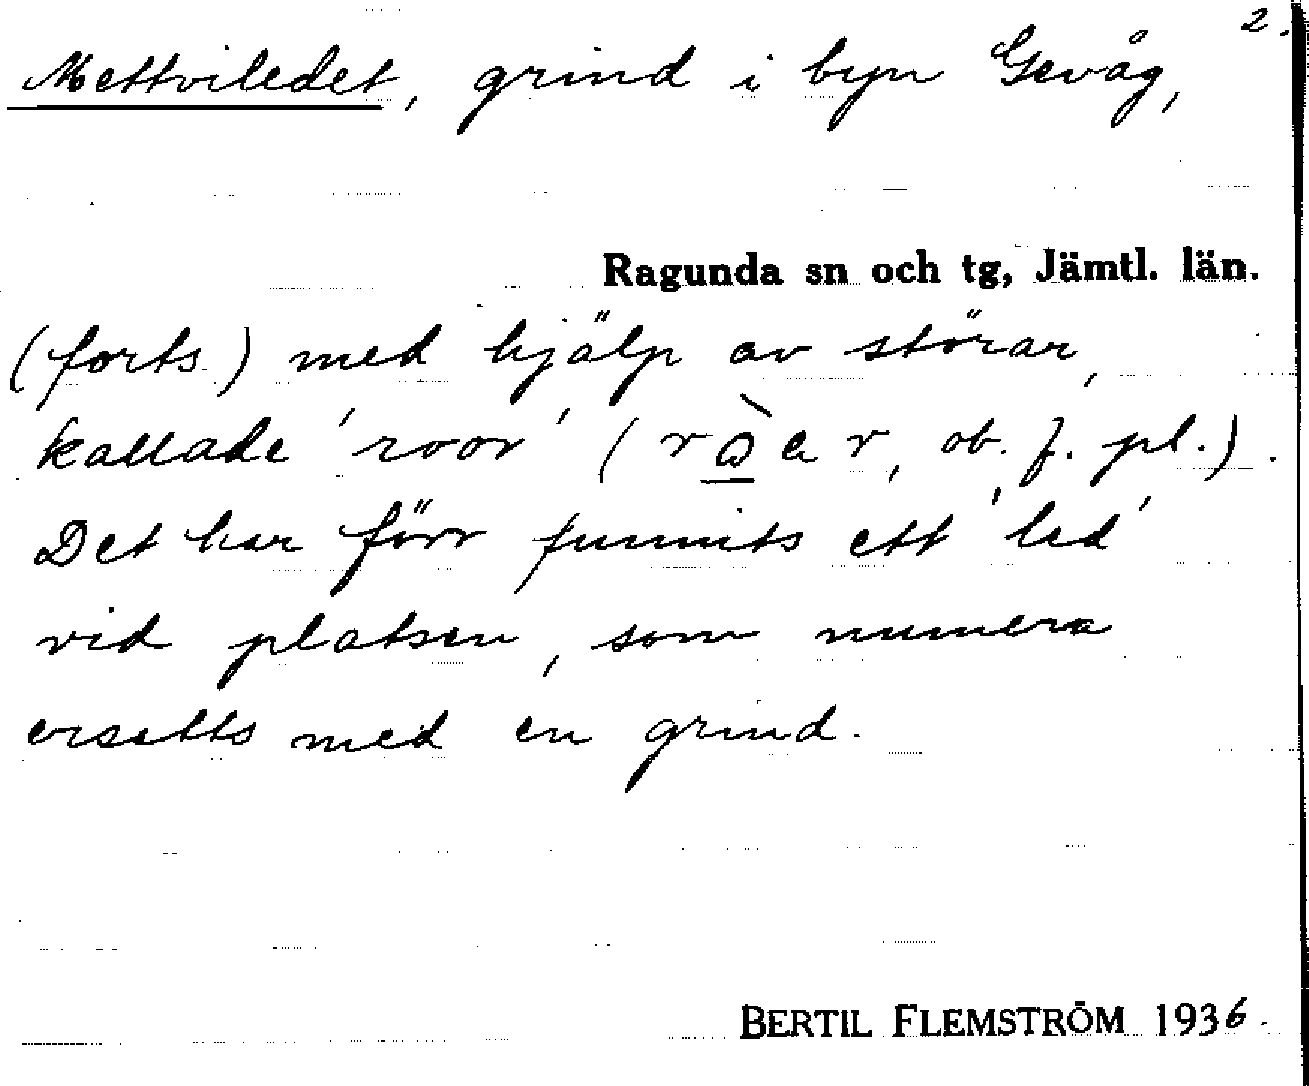 2.
Mettviledet, grind i byn Gevåg,
Ragunda sn och tg, Jämtl. län.
(forts.) med hjälp av störar,
kallade 'roor' (r ò̱ a r, ob. f. pl.).
Det har förr funnits ett 'led'
vid platsen, som numera
ersatts med en grind.
BERTIL FLEMSTRÖM 1936.